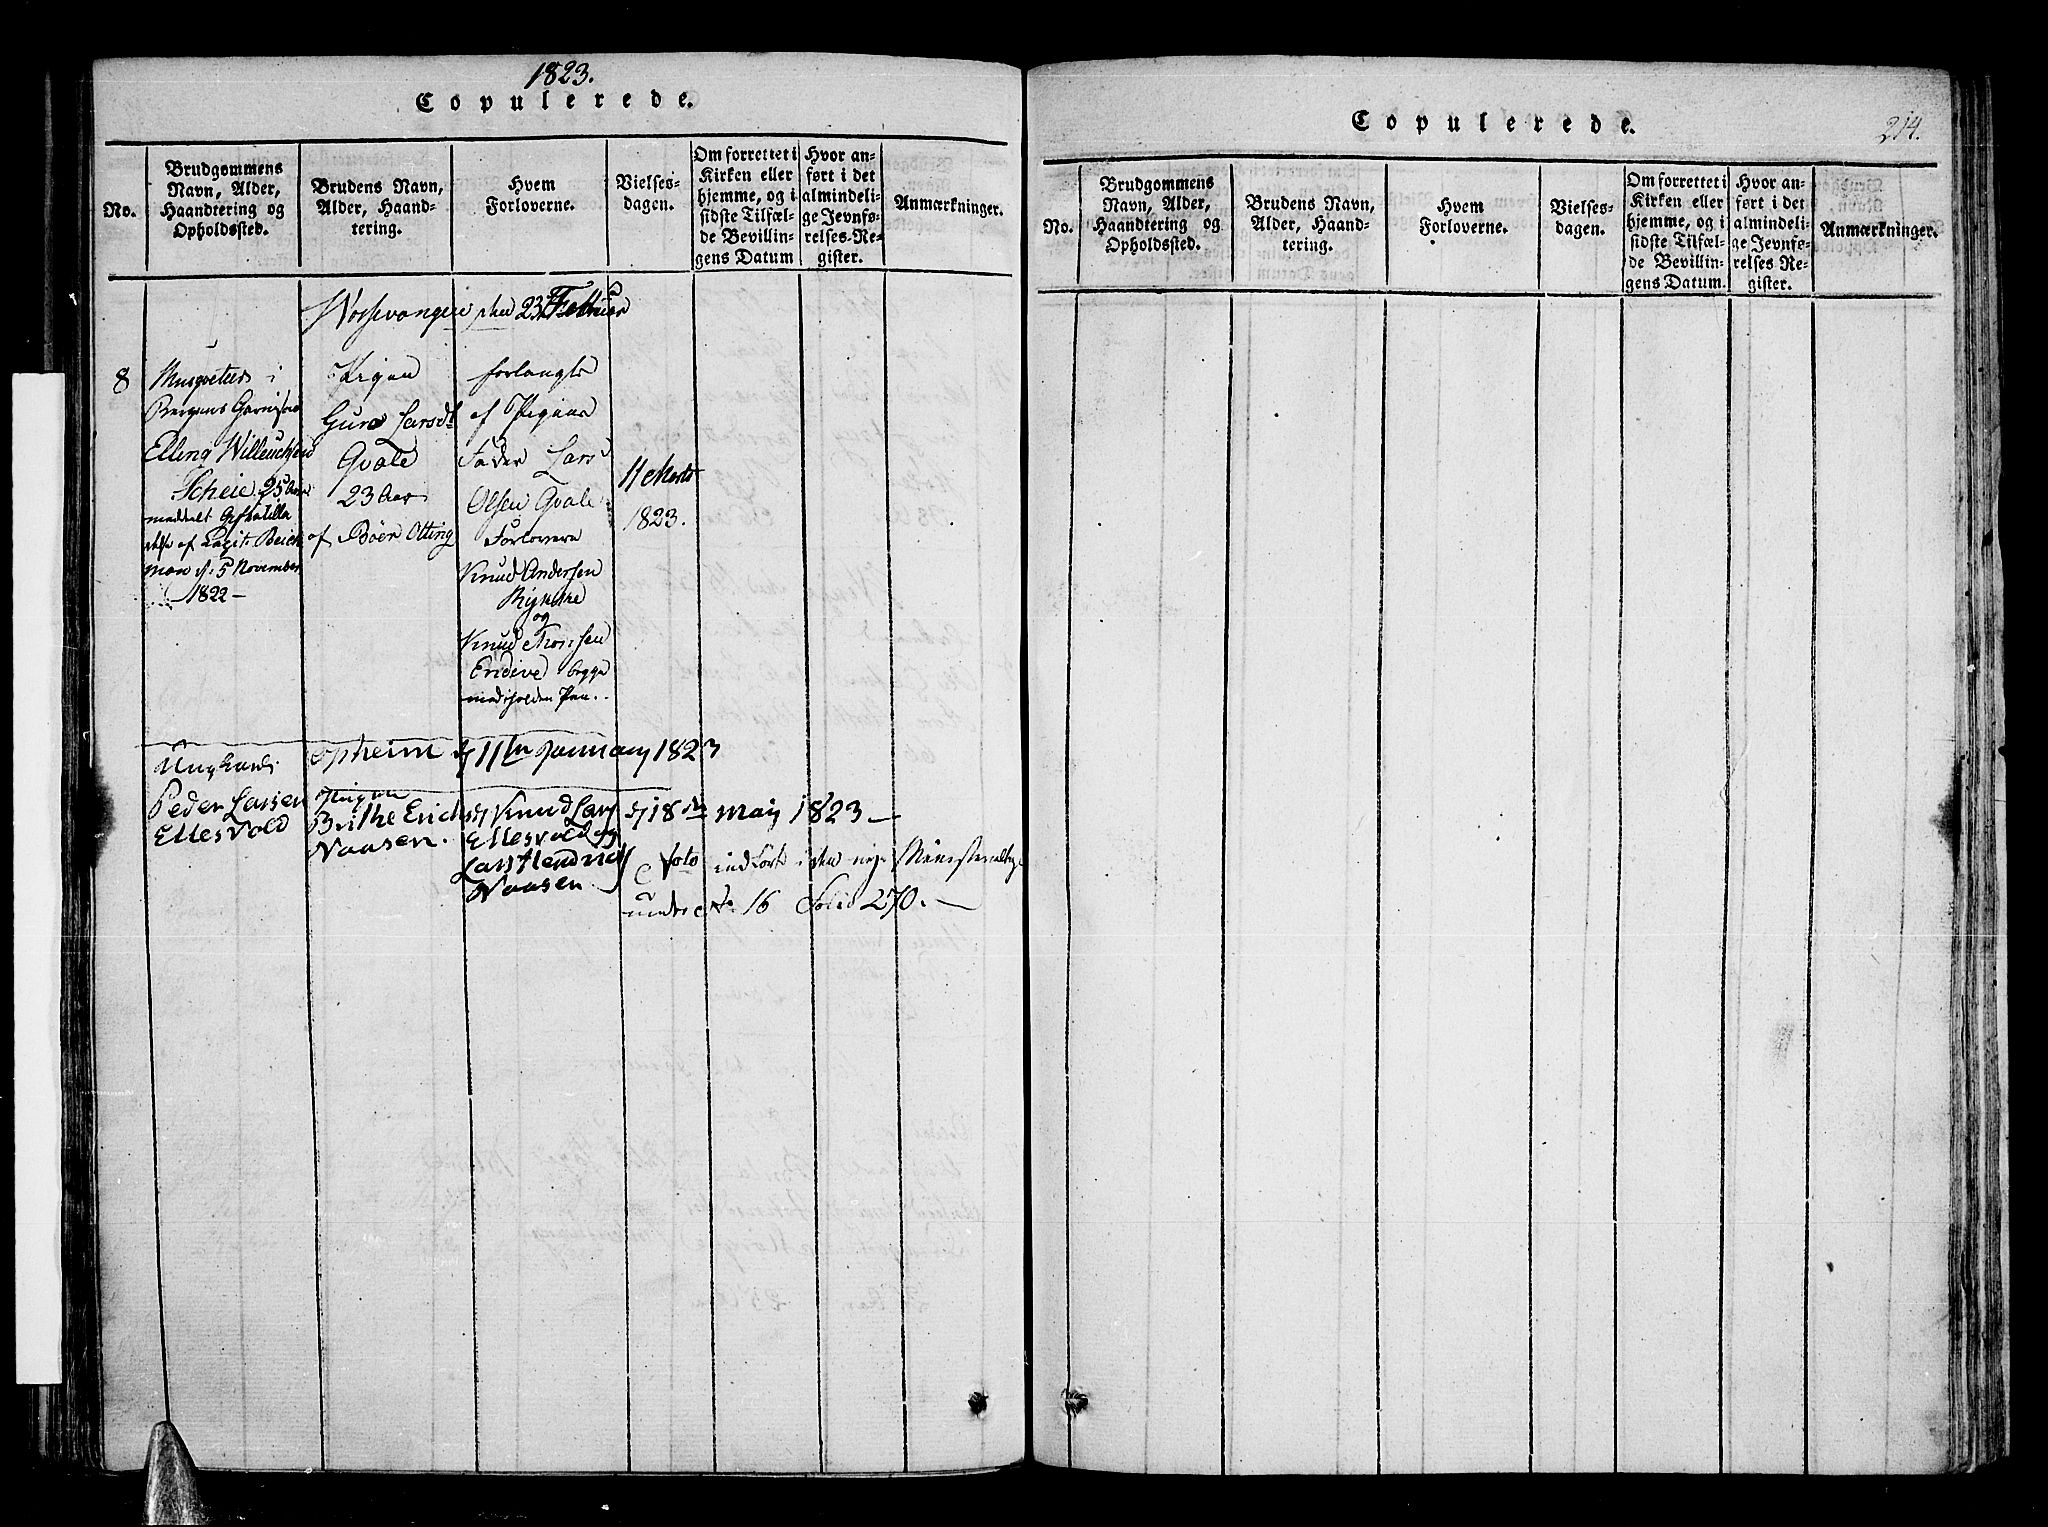 1823.
Copulerede.
No.
Brudgommens
Navn, Alder,
Haandtering og
Opholdssted.
Brudens Navn,
Alder, Haand-
tering.
Hvem
Forloverne.
Vielses-
dagen.
Om forrettet i
Kirken eller
hjemme, og i
sidste Tilfæl-
de Bevillin-
gens Datum
Hvor an-
ført i det
almindeli-
ge Jevnfø-
relses-Re-
gister.
Anmærkninger.
Wossevangen den 23 Februar
8
Musqueteer i
Bergens Garnison
Elling Willichsen
Scheie 25 Aar
meddelt
af Capit: Beich
man d: 5 November
1822 -
Pigen
Guro Larsdt
Qvale
23 Aar
af Bøer Otting
forlangte
af Pigens
Fader Lars
Olsen Qvale
Forlovere
Knud Andersen
Rykkhe
og
Knud Thorsen
Endeve begge
11 Marts
1823.
Ungkarl
Opheim d 11te January 1823
Peder Larsen
Ellesvold
Pigen
Brithe Erichsd
Naasen.
Knud Lars
Ellesvold og
Lars Hendrich
Naasen.
d 18de May 1823 -
Nota indført i den nye Ministerialbog
under No 16 Folio 270. -
Copulerede.
214.
No.
Brudgommens
Navn, Alder,
Haandtering og
Opholdssted.
Brudens Navn,
Alder, Haand-
tering.
Hvem
Forloverne.
Vielses-
dagen.
Om forrettet i
Kirken eller
hjemme, og i
sidste Tilfæl-
de Bevillin-
gens Datum.
Hvor an-
ført i det
almindeli-
ge Jevnfø-
relses Re-
gister.
Anmærkninger.